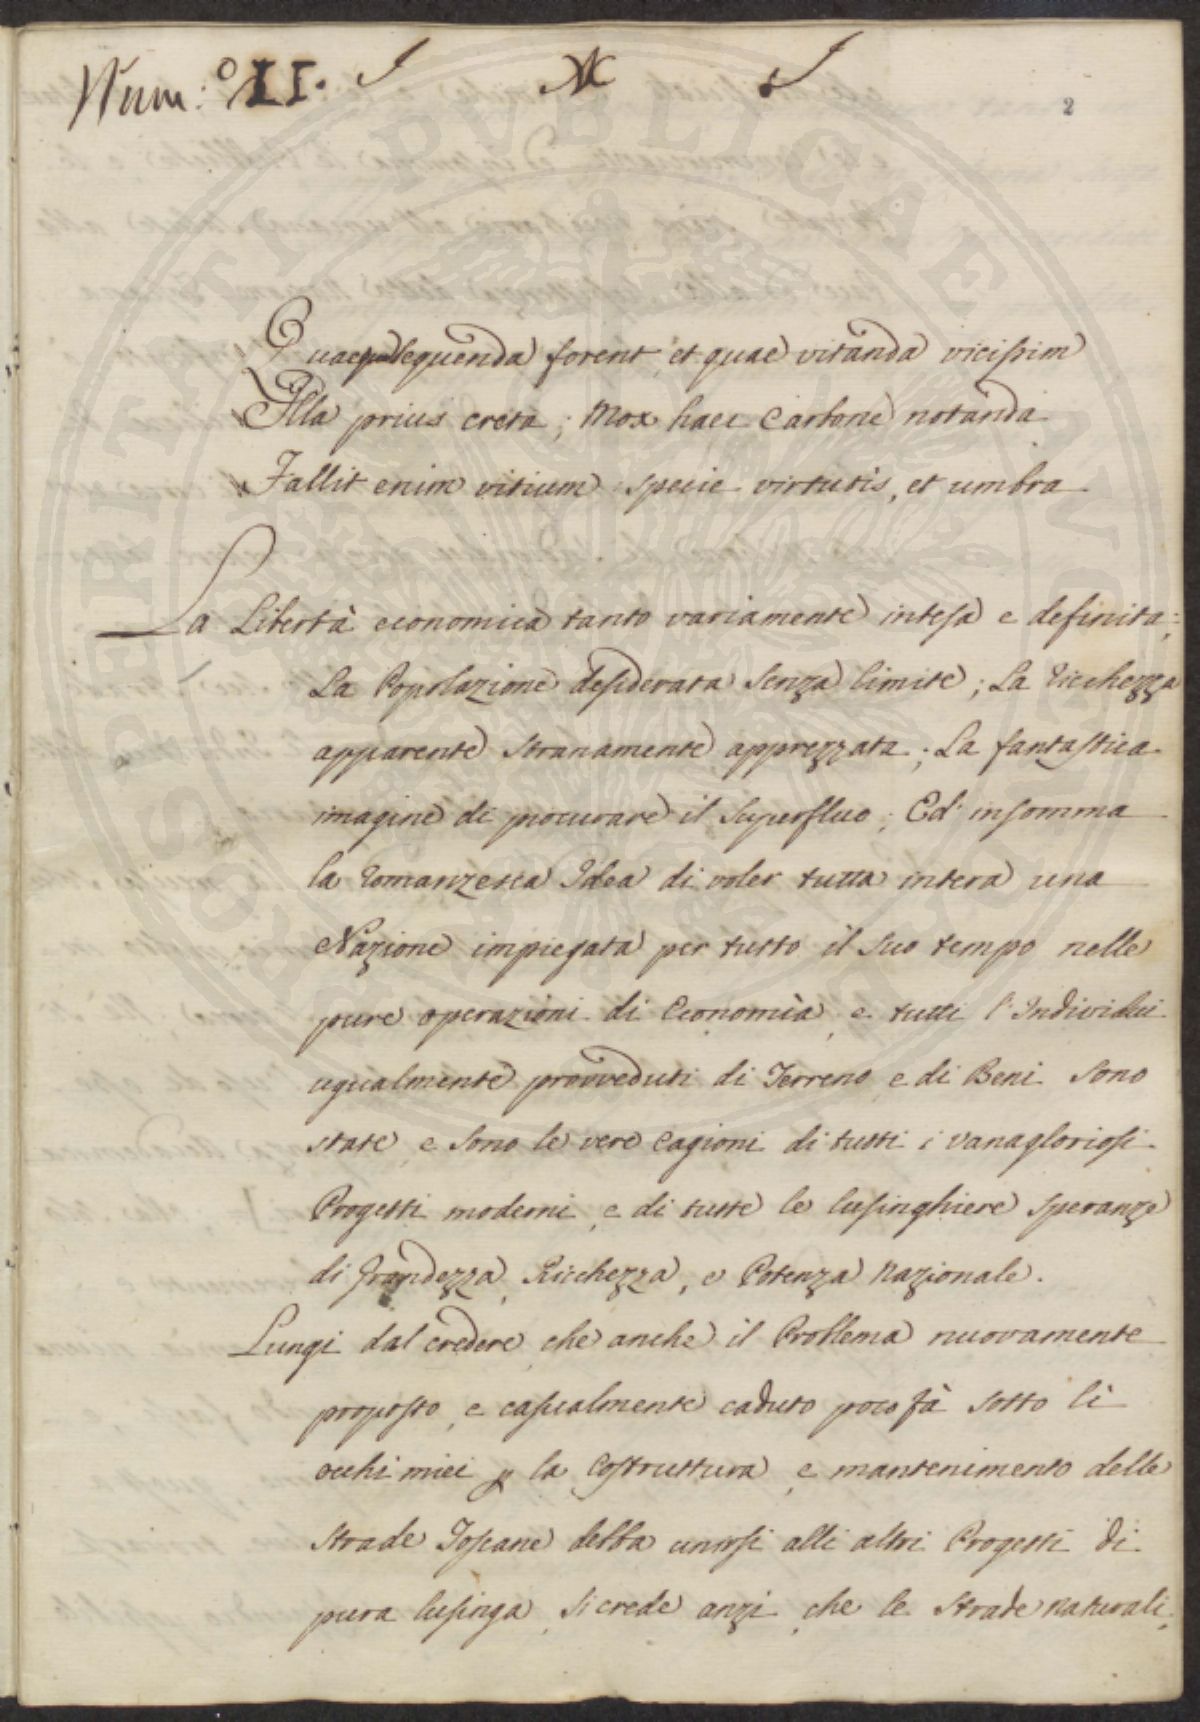 Num:° II. J M J
2
Quaeque sequenda forent, et quae vitanda vicissim
Illa prius creta; Mox haec Carbone notanda
Fallit enim vitium specie virtutis, et umbra
La Libertà economica tanto variamente intesa e definita;
La Popolazione desiderata senza limite; La Ricchezza
apparente stranamente apprezzata; La fantastica
imagine di procurare il Superfluo; Ed insomma
la Romanzesca Idea di voler tutta intera una
Nazione impiegata per tutto il suo tempo nelle
pure operazioni di Economìa, e tutti l'Individui
ugualmente provveduti di Terreno, e di Beni sono
state, e sono le vere cagioni di tutti i vanagloriosi
Progetti moderni, e di tutte le lusinghiere speranze
di Grandezza, Ricchezza, e Potenza Nazionale.
Lungi dal credere, che anche il Problema nuovamente
proposto, e casualmente caduto poco fà sotto li
occhi miei p la Costruttura, e mantenimento delle
strade Toscane debba unirsi alli altri Progetti di
pura lusinga, si crede anzi, che le strade naturali,
SPERITATI PVBLICAE AVGENDAE